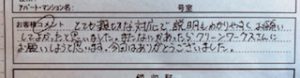 アパート・マンション名　　号室
お客様コメント　とても親切な対応で説明もわかりやすく お願い
してよかったと思いました。またなにかあったらクリーンワークスさんに
お願いしようと思います。今回はありがとうございました。